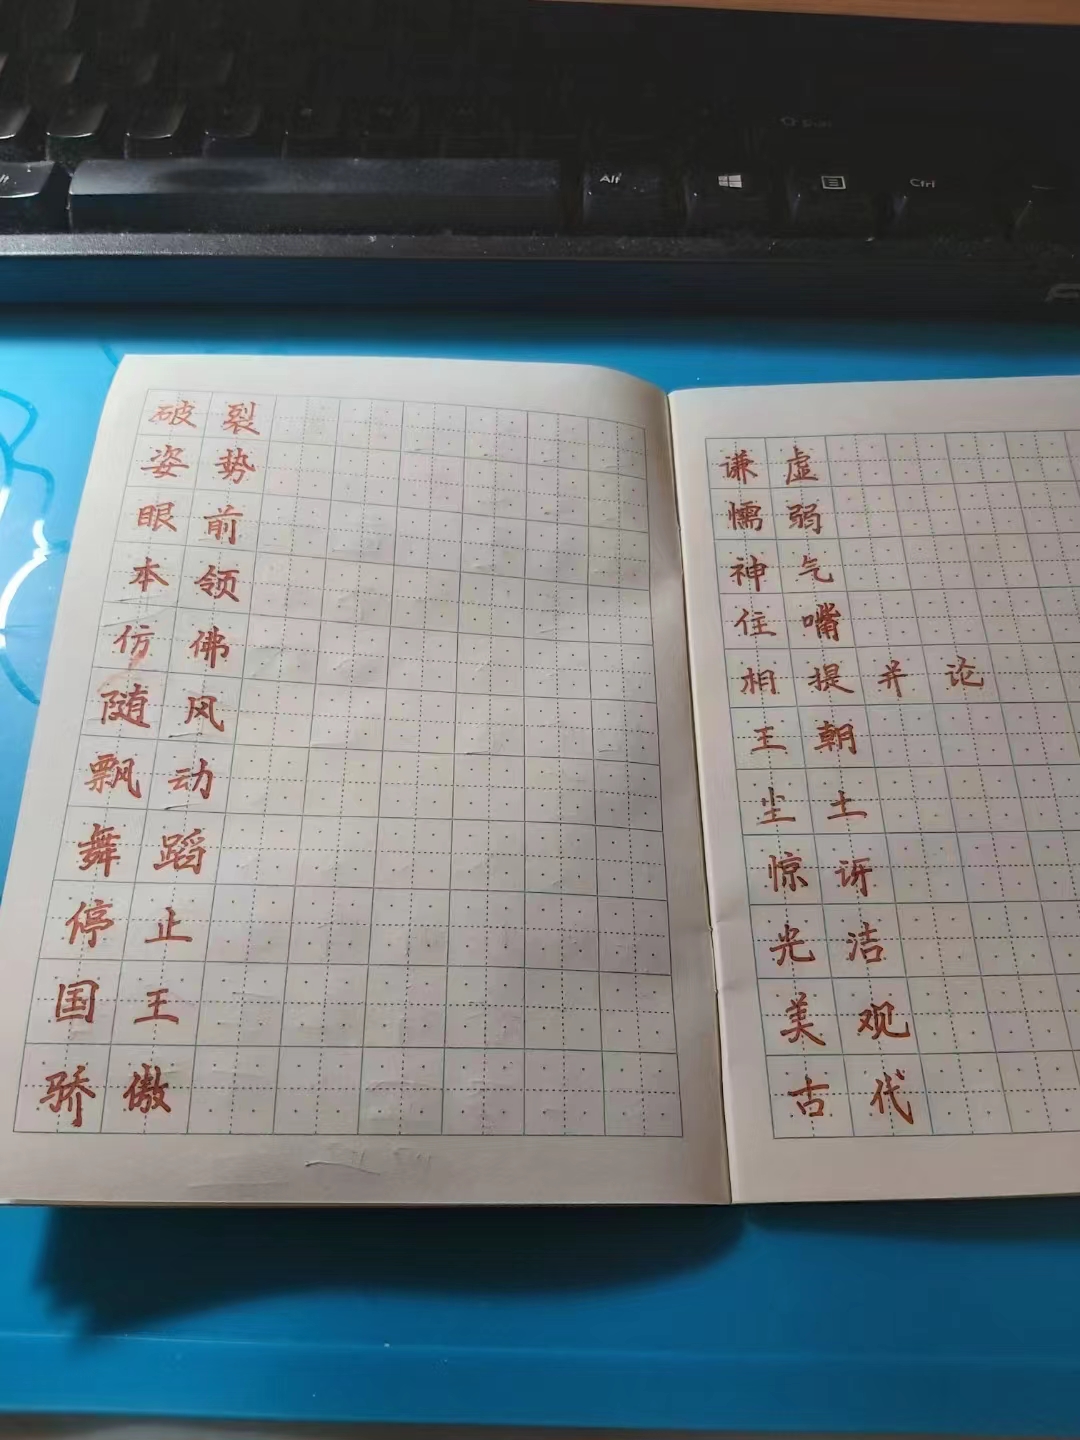 Alt
Ctrl
破裂
姿势
眼前
本领
仿佛
随风
飘动
舞蹈
停止
国王
骄傲
谦虚
懦弱
神气
住嘴
相提并论
王朝
尘土
惊讶
光洁
美观
古代